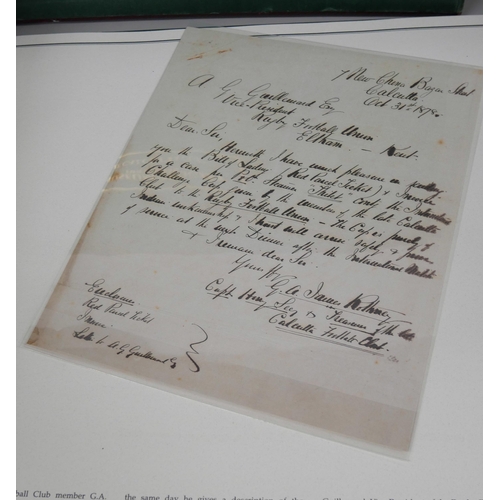 7 New China Bazar Street
Calcutta
Oct 31st 1878.
A G Guillemard Esq
Vice President
Rugby Football Union
Eltham. — Kent.
Dear Sir, Herewith I have much pleasure in
you the Bill of Lading & Invoice
for a case per Steamer the International
Challenge Cup given by the members of the late Calcutta
Club to the Rugby Football Union — The Cup is purely of
Indian workmanship & I trust will arrive safely & prove
of at the Dinner after the International Match
I remain dear Sir.
Yours ffy
G. A. James Rothney
Capt. Hony. Secy & Treasurer of the late
Calcutta Football Club.
Enclosures
Invoice
A G Guillemard Esq
ball Club member G.A.
the same day he gives a description of the